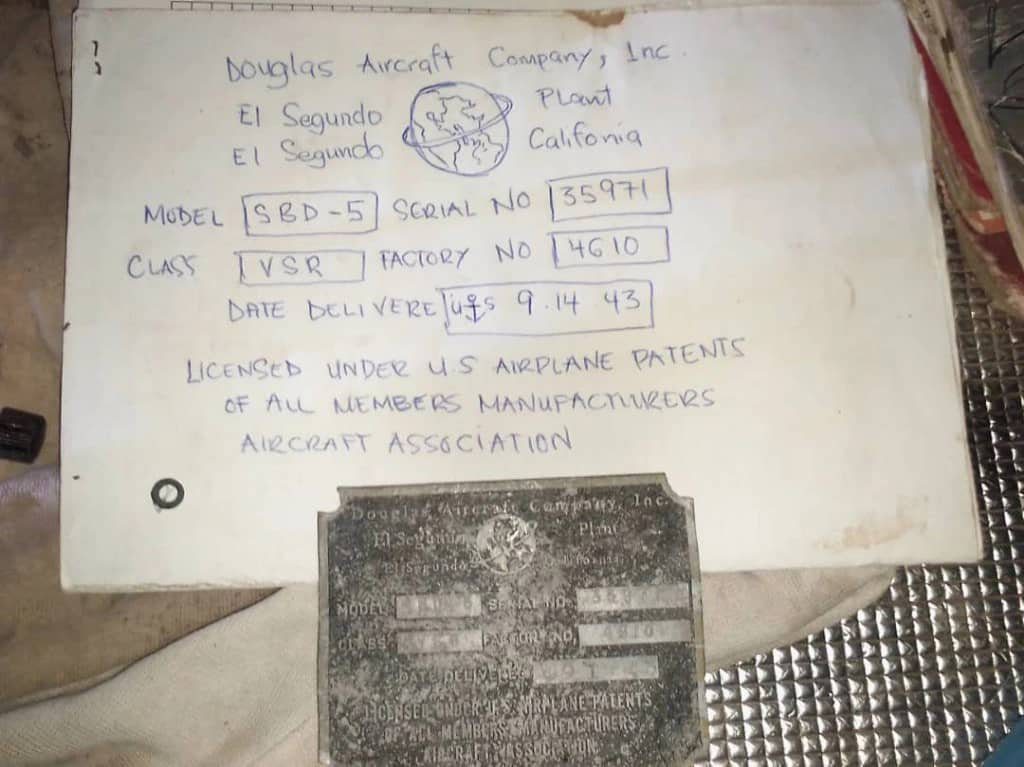 Douglas Aircraft Company, Inc.
El Segundo Plant
El Segundo Califonia
MODEL SBD-5 SERIAL NO 35971
CLASS VSR FACTORY NO 4610
DATE DELIVERE U⚓S 9.14 43
LICENSED UNDER U.S AIRPLANE PATENTS
OF ALL MEMBERS MANUFACTURERS
AIRCRAFT ASSOCIATION
Douglas Aircraft Company, Inc.
El Segundo Plant
El Segundo
MODEL SERIAL NO.
CLASS FACTORY NO.
DATE DELIVERED
LICENSED UNDER U.S. AIRPLANE PATENTS
OF ALL MEMBERS MANUFACTURERS
AIRCRAFT ASSOCIATION